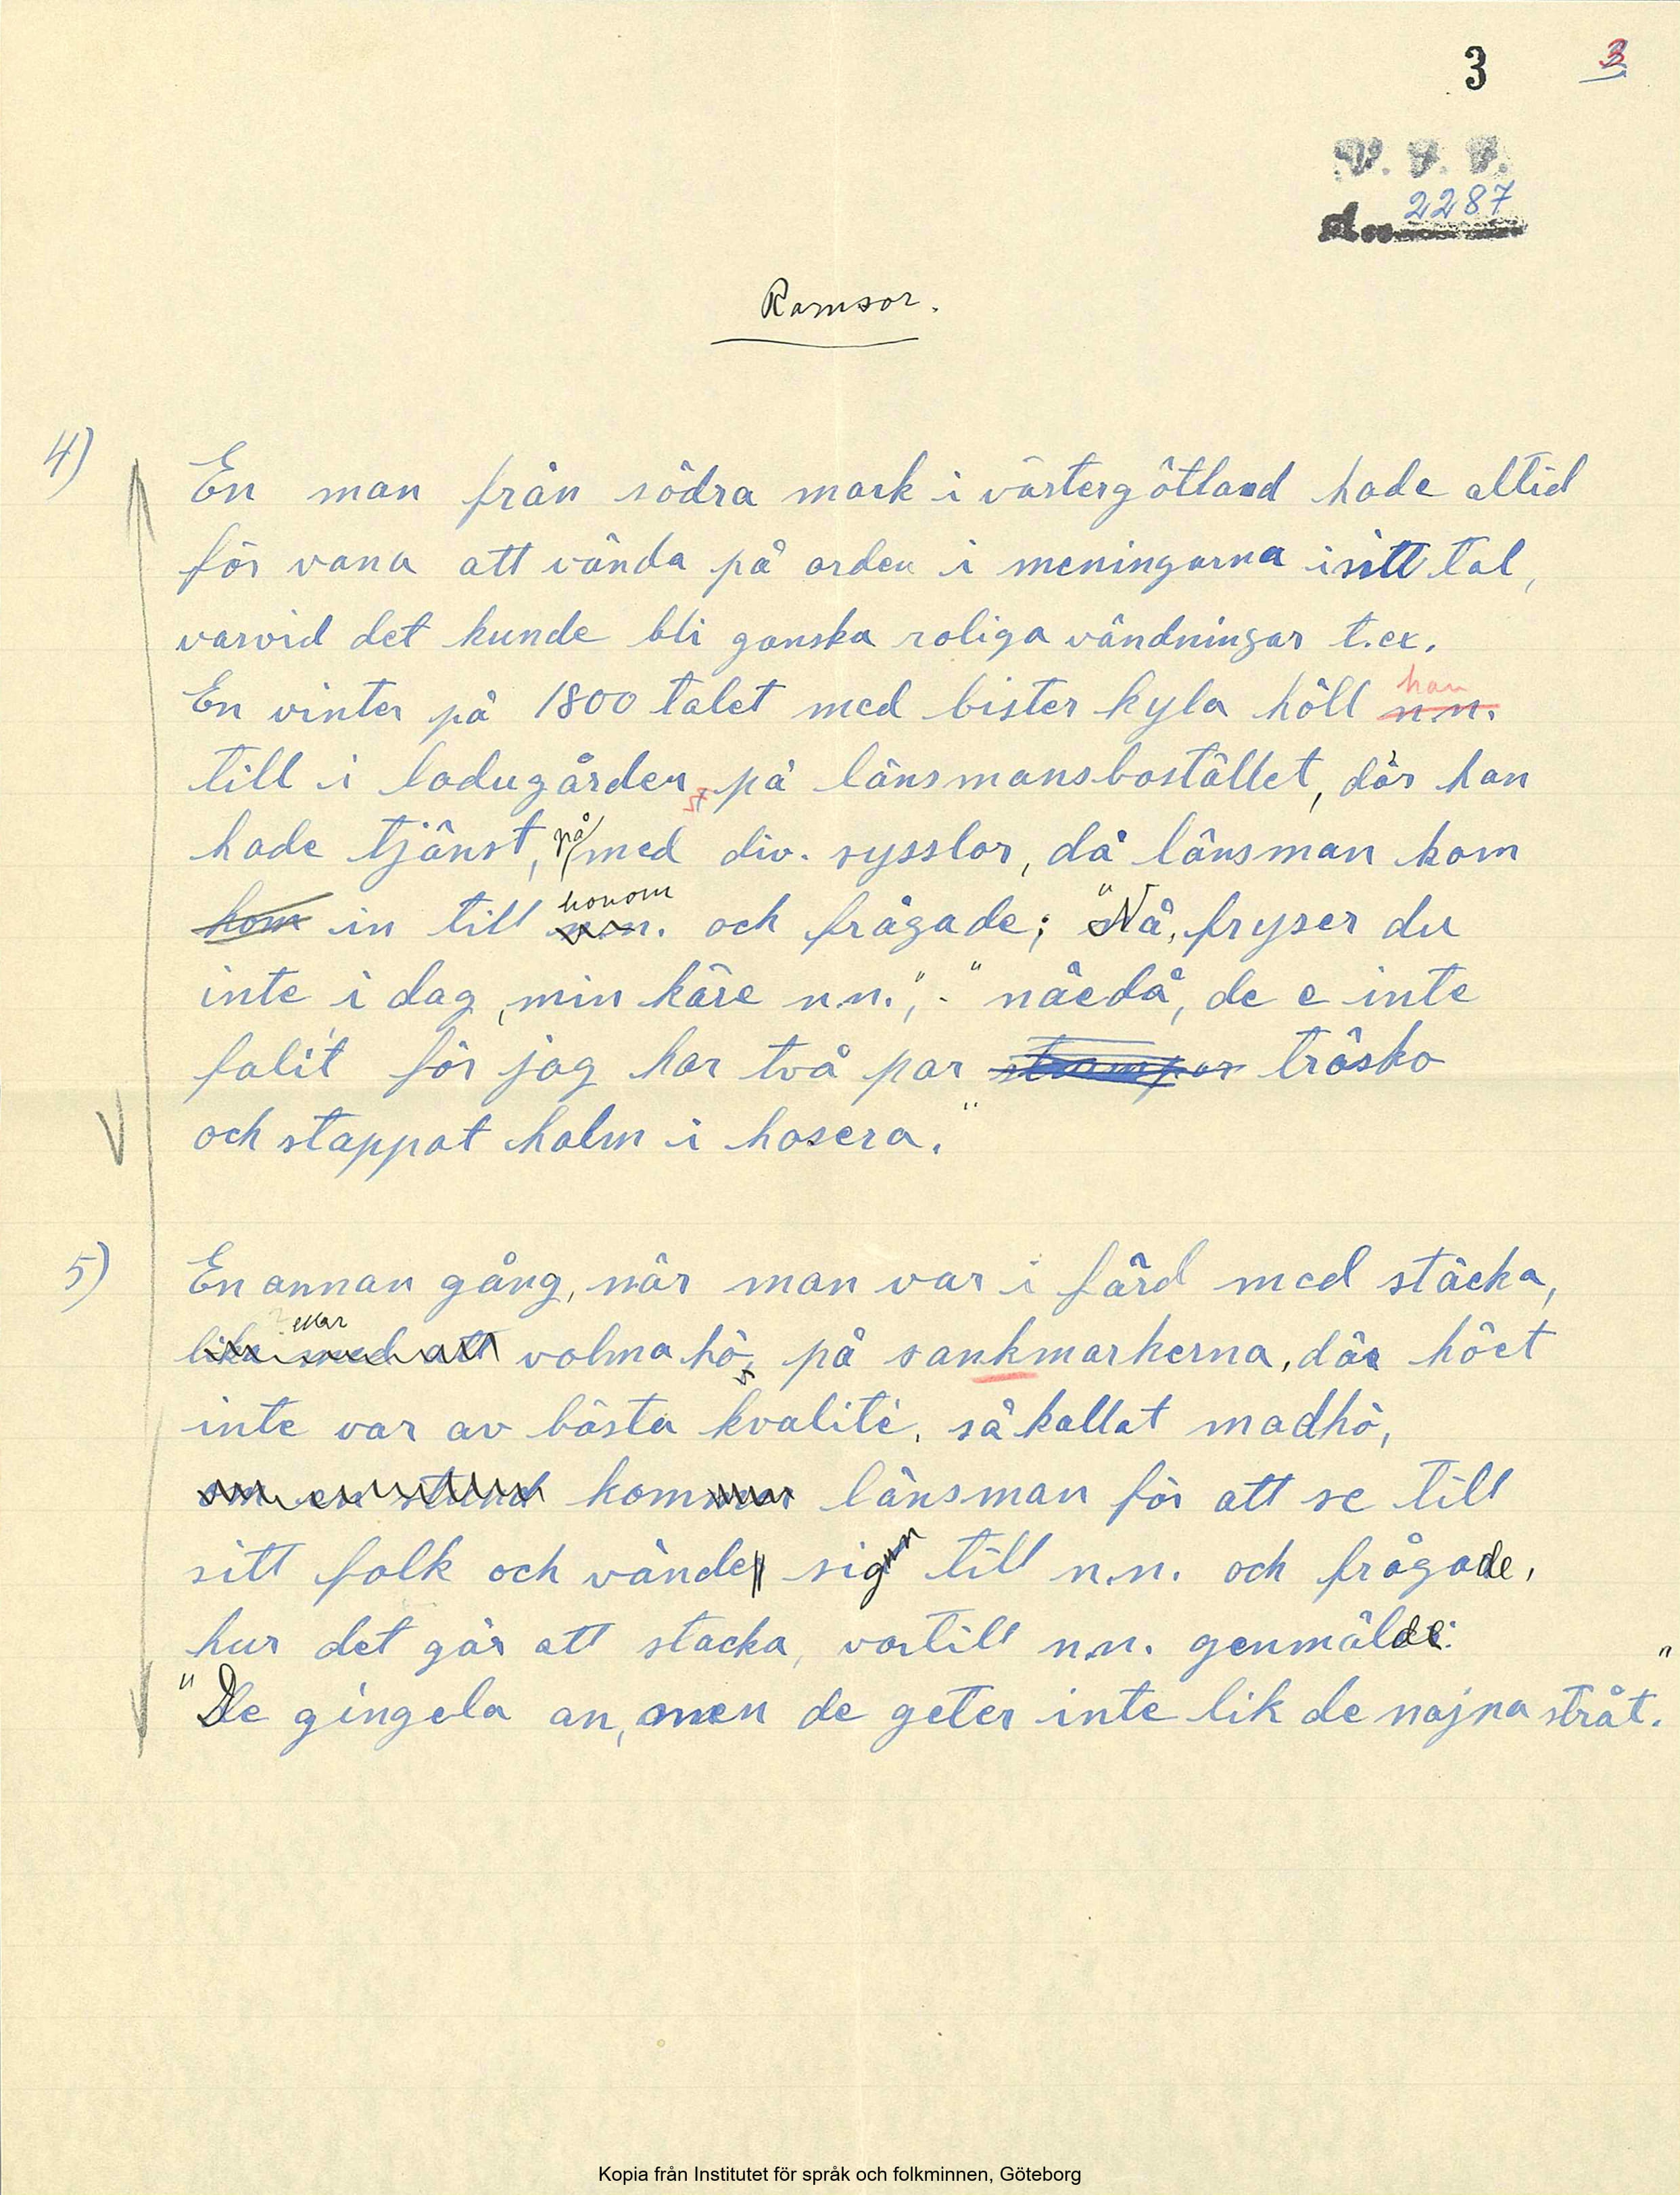 3 3
V. F. F.
2287
Ramsor.
4) En man från södra mark i västergötland hade altid
för vana att vända på orden i meningarna i sitt tal,
varvid det kunde bli ganska roliga vändningar t.ex.
han
En vinter på 1800 talet med bister kyla höll n.n.
till i ladugården på länsmansbostället, där han
hade tjänst, på med div. sysslor, då länsman kom
honom
kom in till n.n. och frågade; "Nå, fryser du
inte i dag, min käre n.n.", - "näedå, de e inte
falit för jag har två par strumpor träsko
och stappat halm i hosera."
5) En annan gång, när man var i färd med stäcka,
eller
lika med att volma hö, på sankmarkerna, där höet
inte var av bästa kvalité, så kallat madhö,
om en stund kommer länsman för att se till
sitt folk och vände sig till n.n. och frågade,
hur det går att stacka, vartill n.n. genmälde:
"De gingela an, men de geter inte lik de najna stråt."
Kopia från Institutet för språk och folkminnen, Göteborg